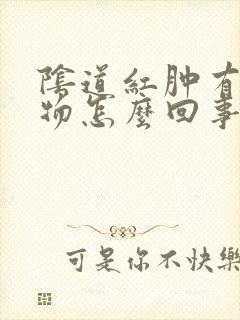 陰道紅肿有
物怎麼回事
可是你不快樂